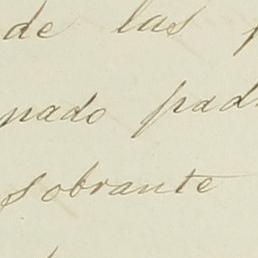 de las p
nado padr
sobrante